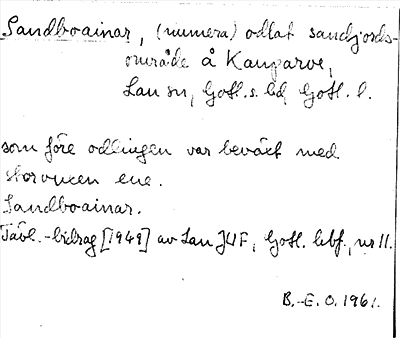 Sandboainar, (numera) odlat sandjords-
område å Kauparve,
Lau sn, Gotl. s. hd Gotl. l.
som före odlingen var beväxt med
storvuxen ene.
Sandboainar.
Tävl.-bidrag [1949] av Lau JUF, Gotl. lbf., nr 11.
B.-E. O. 1961.